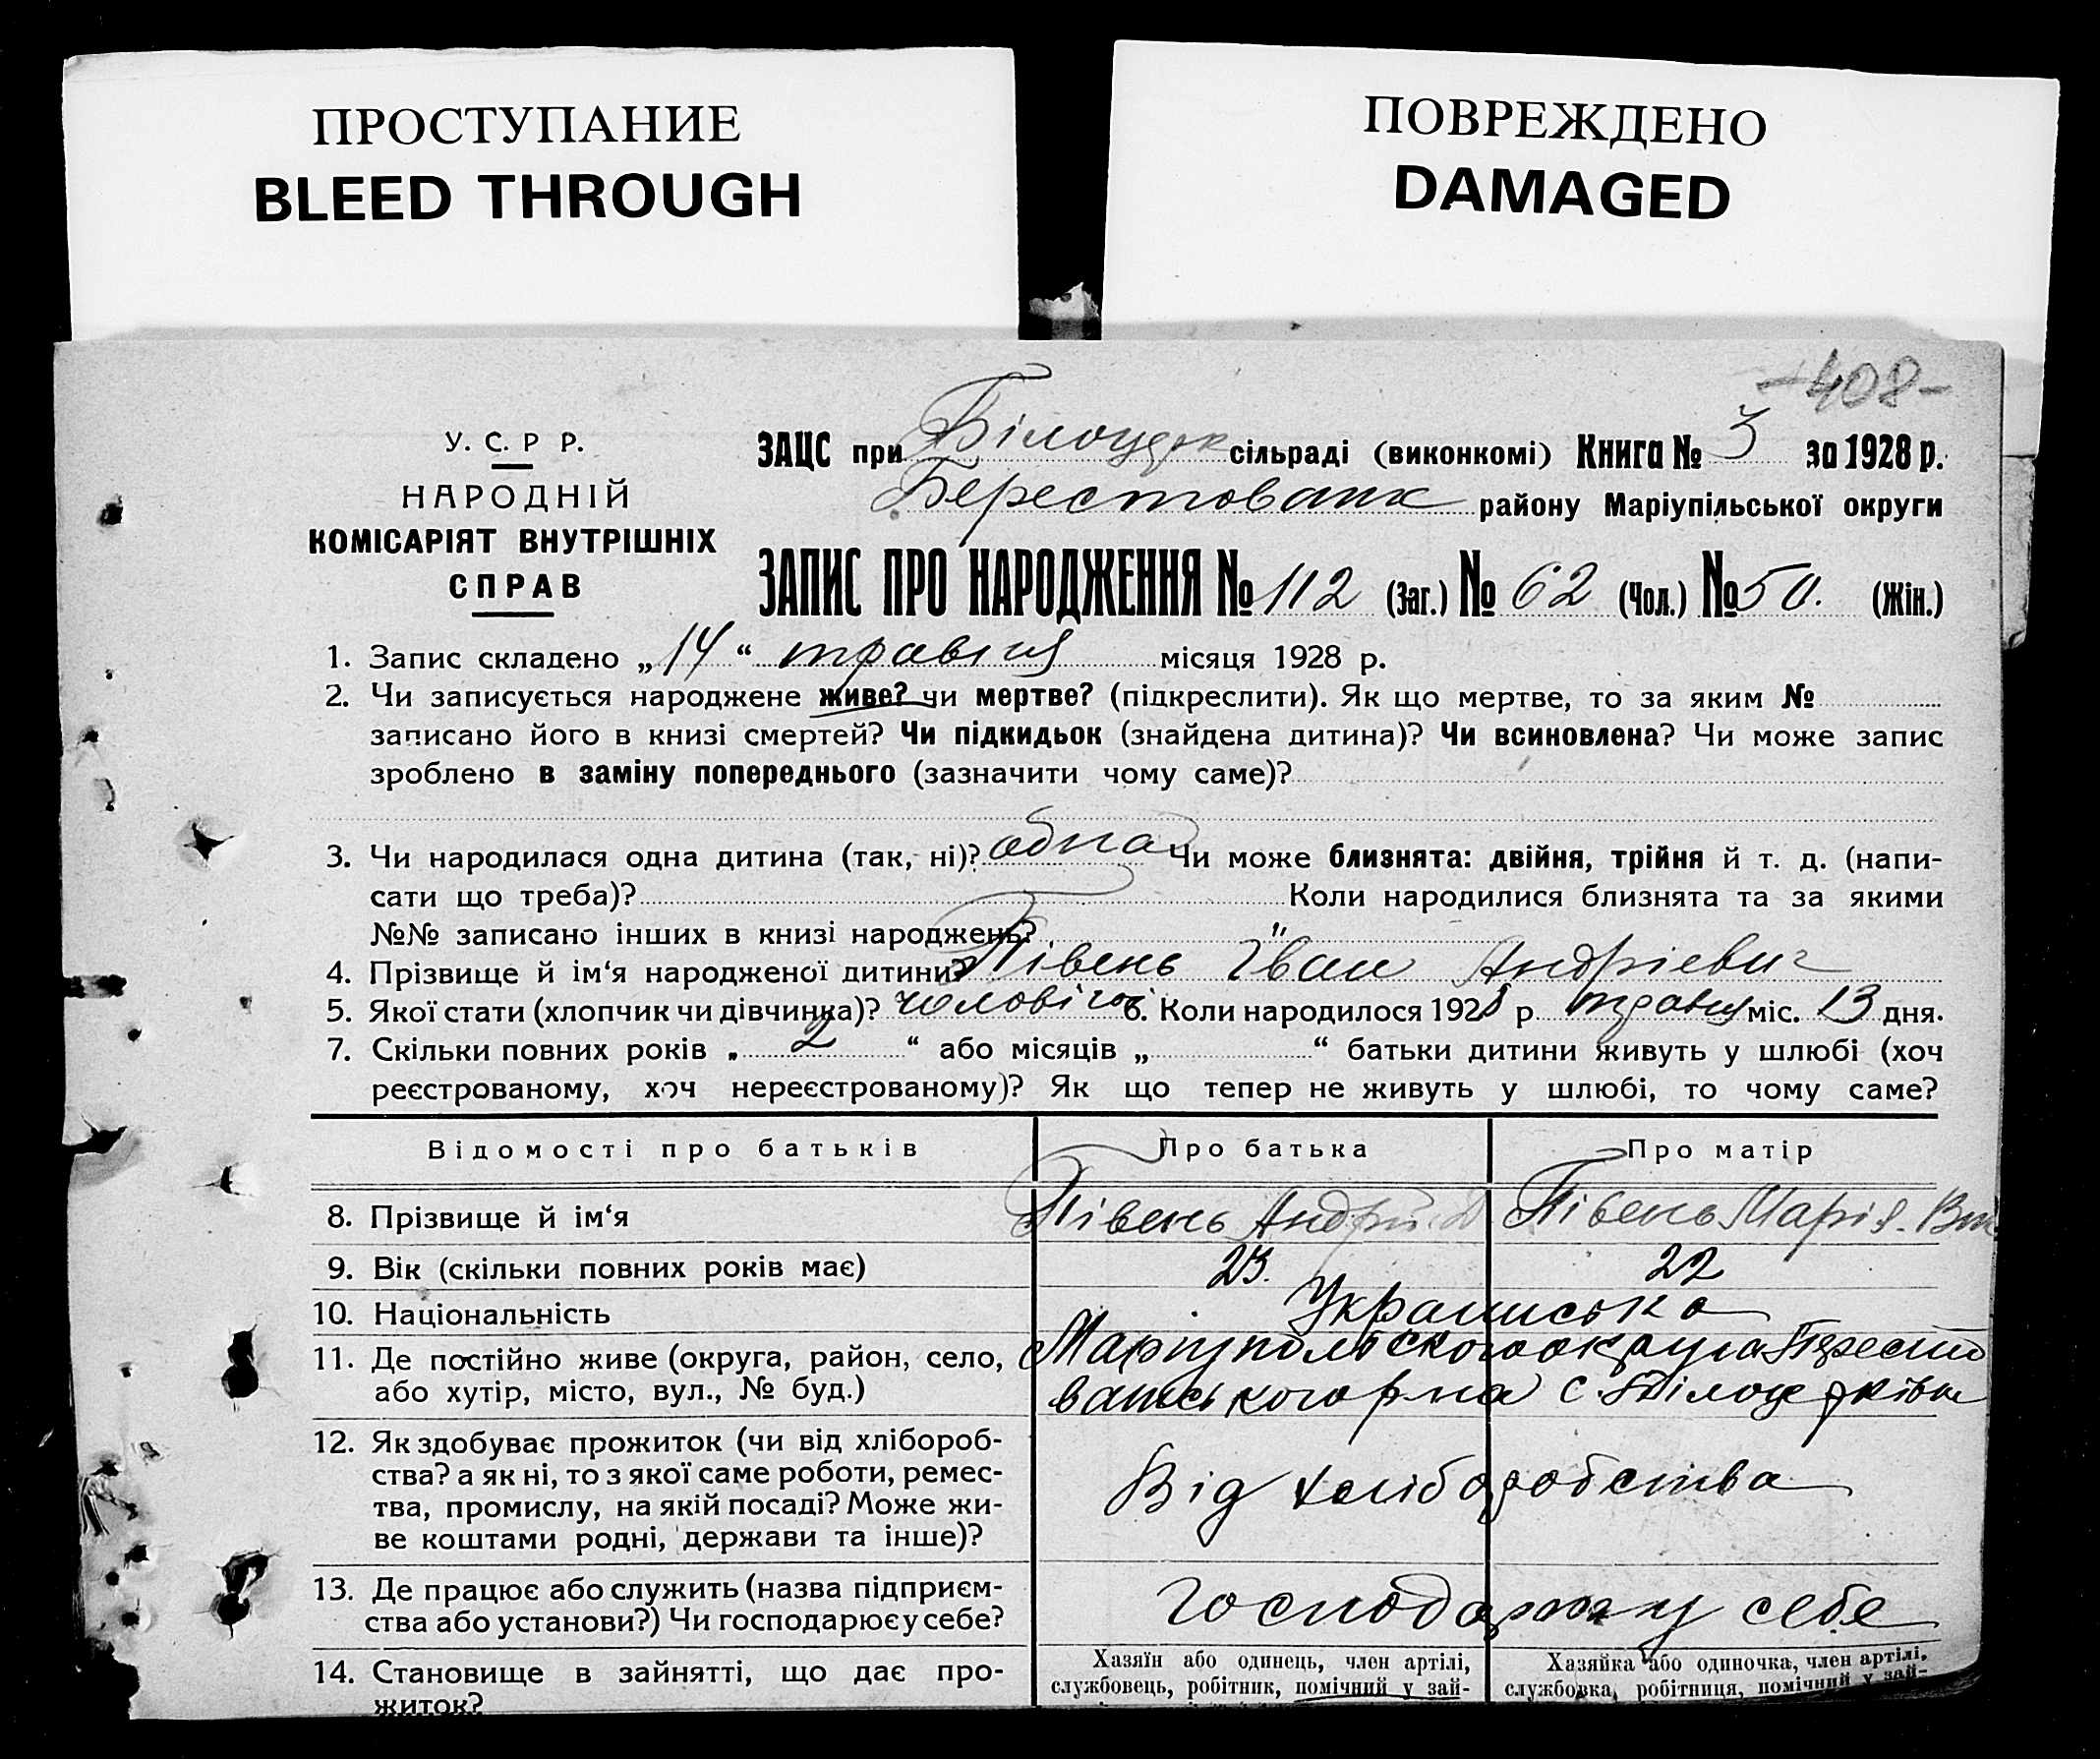 ПРОСТУПАНИЕ
BLEED THROUGH
ПОВРЕЖДЕНО
DAMAGED
-408-
У. С. Р Р.
НАРОДНІЙ
КОМІСАРІЯТ ВНУТРІШНІХ
СПРАВ
ЗАЦС при Білоцерк сільраді (виконкомі) Книга № 3 за 1928 р.
Берестованк району Маріупільської округи
ЗАПИС ПРО НАРОДЖЕННЯ № 112 (Заг.) № 62 (Чол.) № 50. (Жін.)
1. Запис складено „ 14 “ травня місяця 1928 р.
2. Чи записується народжене живе? чи мертве? (підкреслити). Як що мертве, то за яким №
записано його в книзі смертей? Чи підкидьок (знайдена дитина)? Чи всиновлена? Чи може запис
зроблено в заміну попереднього (зазначити чому саме)?
3. Чи народилася одна дитина (так, ні)? одна Чи може близнята: двійня, трійня й т. д. (напи-
сати що треба)? Коли народилися близнята та за якими
№№ записано інших в книзі народжень? "
4. Прізвище й ім‘я народженої дитини? Півень Іван Андрієвич
5. Якої стати (хлопчик чи дівчинка)? чоловічої 6. Коли народилося 1928 р. травня міс. 13 дня.
7. Скільки повних років „ 2 “ або місяців „ “ батьки дитини живуть у шлюбі (хоч
реєстрованому, хоч нереєстрованому)? Як що тепер не живуть у шлюбі, то чому саме?
Відомості про батьків Про батька Про матір
8. Прізвище й ім‘я Півень Андрій Д Півень Марія.
9. Вік (скільки повних років має) 23. 22
10. Національність Українська
11. Де постійно живе (округа, район, село, Маріупольского округа
або хутір, місто, вул., № буд.) ванського р-на с. Білоцерківка
12. Як здобуває прожиток (чи від хлібороб-
ства? а як ні, то з якої саме роботи, ремес-
тва, промислу, на якій посаді? Може жи-
ве коштами родні, держави та інше)?
Від хліборобства
13. Де працює або служить (назва підприєм-
ства або установи?) Чи господарює у себе?
у себе
14. Становище в зайнятті, що дає про-
житок?
Хазяїн або одинець, член артілі,
службовець, робітник, помічний у зай-
Хазяйка або одиночка, член артілі,
службовка, робітниця, помічний у зай-